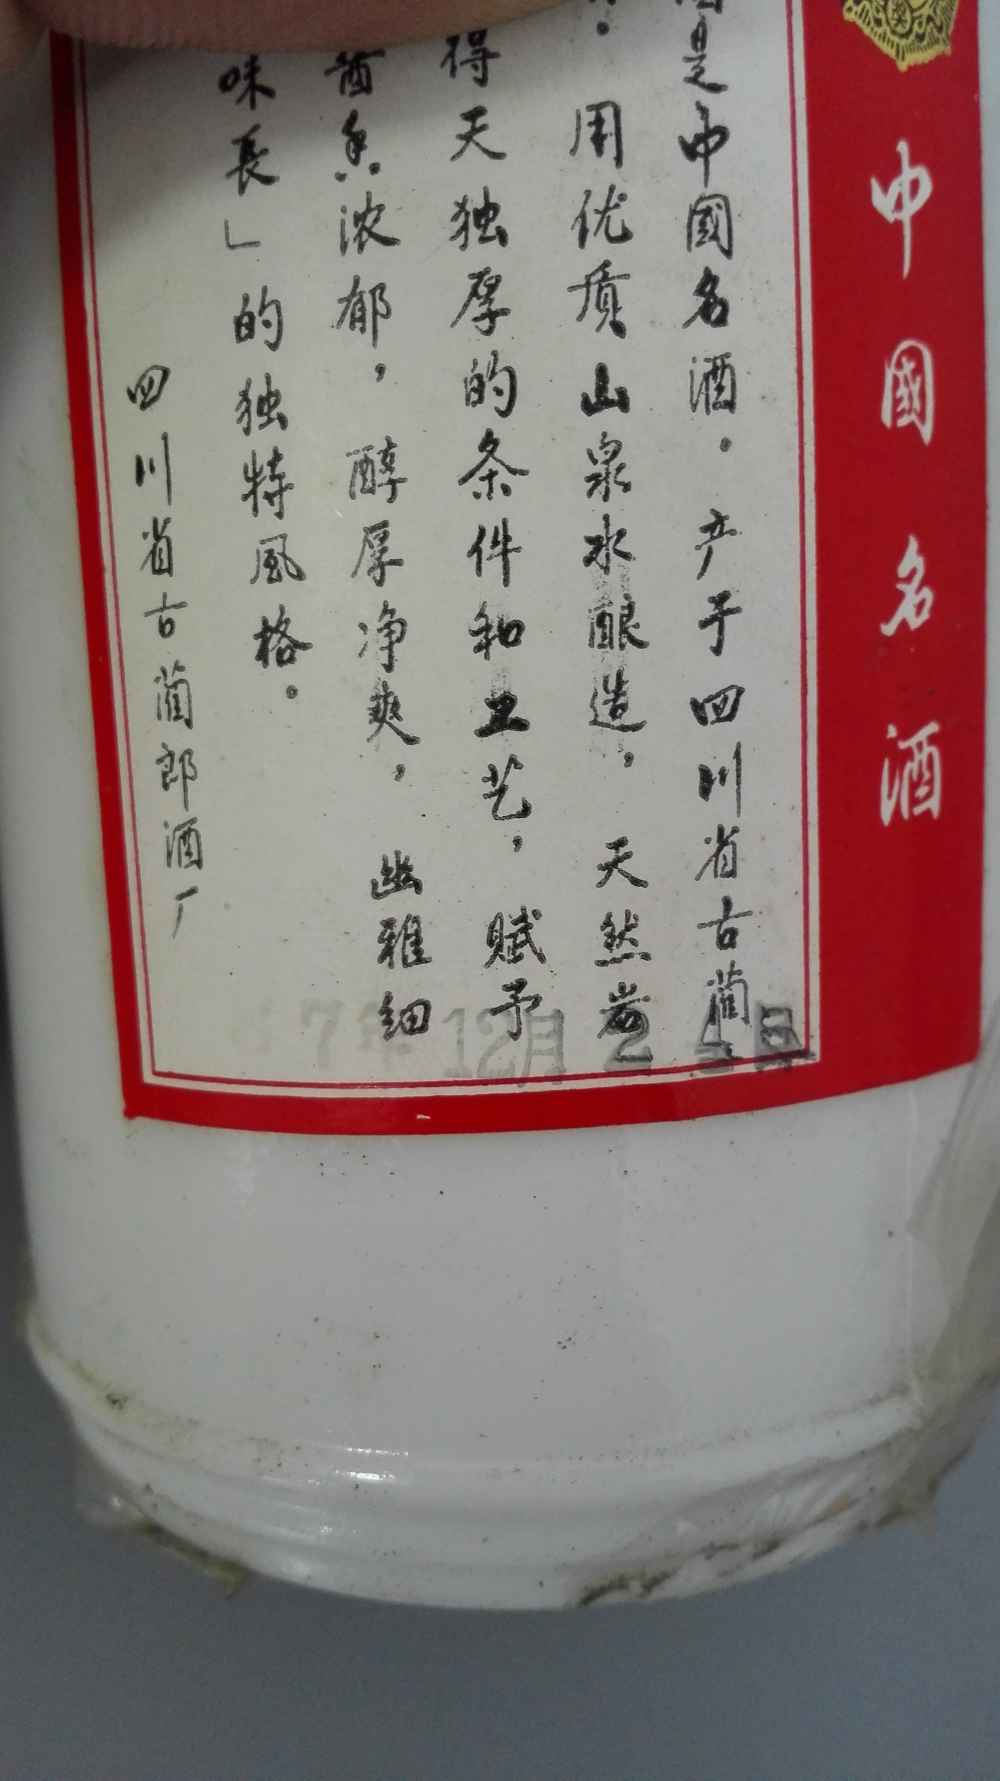 中國名酒
是中國名酒。产于四川省古蔺
用优质山泉水酿造，天然岩
得天独厚的条件和工艺，赋予
酱香浓郁，醇厚净爽，幽雅细
味長」的独特風格。
四川省古蔺郎酒厂
7年12月2日